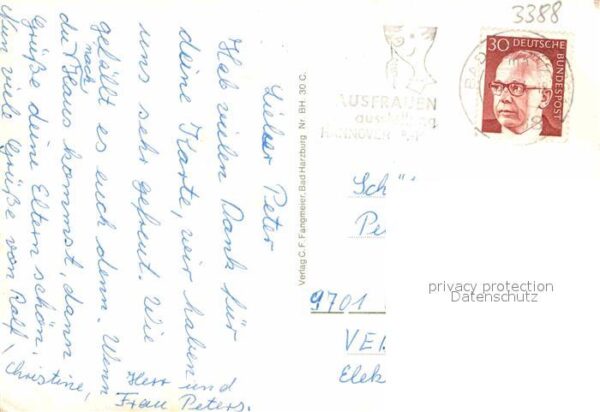 3388
30 DEUTSCHE BUNDESPOST
BAD
AUSFRAUEN
ausstellung
HANNOVER
Lieber Peter
Hab vielen Dank für
deine Karte, wir haben
uns sehr gefreut. Wie
gefällt es euch denn. Wenn
du nach Haus kommst, dann
Grüße deine Eltern schön.
Nun viele Grüße von Ralf,
Christine,
Herr und
Frau Peters.
Verlag C. F. Fangmeier, Bad Harzburg Nr BH. 30 C.
Schü
Pe
9701
VEI
Elek
privacy protection
Datenschutz